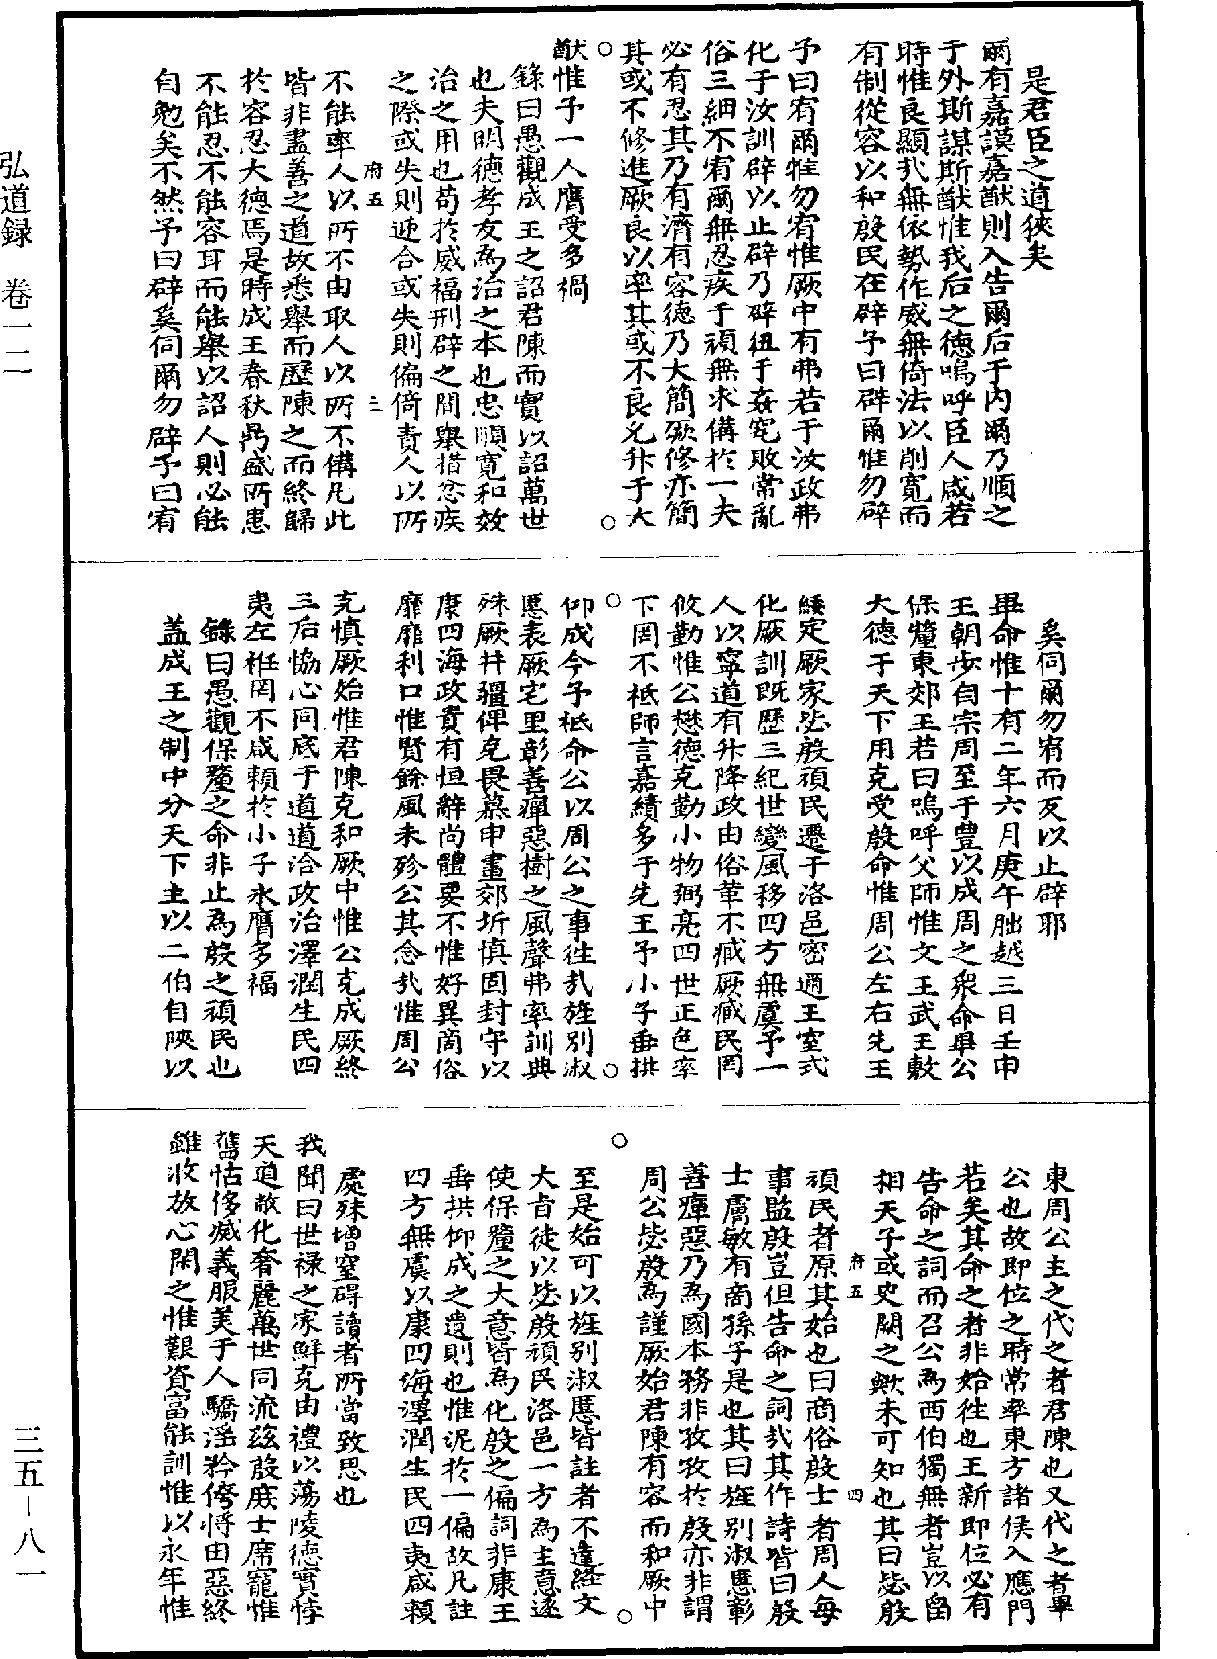 是君臣之道狹矣
爾有嘉謨嘉猷則入告爾后于內爾乃順之
于外斯謀斯猷惟我后之德嗚呼臣人咸若
時惟良顯哉無依勢作威無倚法以削寬而
有制從容以和殷民在辟予曰辟爾惟勿辟
予曰宥爾惟勿宥惟厥中有弗若于汝政弗
化于汝訓辟以止辟乃辟狃于姦宄敗常亂
俗三細不宥爾無忿疾于頑無求備於一夫
必有忍其乃有濟有容德乃大簡厥修亦簡
其或不修進厥良以率其或不良允升于大
猷惟予一人膺受多福
錄曰愚觀成王之詔君陳而實以詔萬世
也夫明德孝友為治之本也忠順寬和效
治之用也苟於威福刑辟之間舉措忿疾
之際或失則迎合或失則偏倚責人以所
府五
二
不能率人以所不由取人以所不備凡此
皆非盡善之道故悉舉而歷陳之而終歸
於容忍大德焉是時成王春秋鼎盛所患
不能忍不能容耳而能舉以詔人則必能
自勉矣不然予曰辟奚伺爾勿辟予曰宥
奚伺爾勿宥而反以止辟耶
畢命惟十有二年六月庚午朏越三日壬申
王朝步自宗周至于豐以成周之衆命畢公
保釐東郊王若曰嗚呼父師惟文王武王敷
大德于天下用克受殷命惟周公左右先王
綏定厥家毖殷頑民遷于洛邑密邇王室式
化厥訓既歷三紀世變風移四方無虞予一
人以寧道有升降政由俗革不臧厥臧民罔
攸勸惟公懋德克勤小物弼亮四世正色率
下罔不祗師言嘉績多于先王予小子垂拱
仰成今予祗命公以周公之事往哉旌別淑
慝表厥宅里彰善癉惡樹之風聲弗率訓典
殊厥井疆俾克畏慕申畫郊圻慎固封守以
康四海政貴有恒辭尚體要不惟好異商俗
靡靡利口惟賢餘風未殄公其念哉惟周公
克慎厥始惟君陳克和厥中惟公克成厥終
三后協心同底于道道洽政治澤潤生民四
夷左衽罔不咸賴於小子永膺多福
錄曰愚觀保釐之命非止為殷之頑民也
蓋成王之制中分天下主以二伯自陝以
東周公主之代之者君陳也又代之者畢
公也故即位之時常率東方諸侯入應門
若矣其命之者非始徃也王新即位必有
告命之詞而召公為西伯獨無者豈以留
相天子或史闕之歟未可知也其曰毖殷
府五
四
頑民者原其始也曰商俗殷士者周人每
事監殷豈但告命之詞哉其作詩皆曰殷
士膚敏有商孫子是也其曰旌別淑慝彰
善癉惡乃為國本務非孜孜於殷亦非謂
周公毖殷為謹厥始君陳有容而和厥中
至是始可以旌別淑慝皆註者不達經文
大旨徒以毖殷頑民洛邑一方為主意遂
使保釐之大意皆為化殷之偏詞非康王
垂拱仰成之遺則也惟泥於一偏故凡註
四方無虞以康四海澤潤生民四夷咸賴
處殊增窒碍讀者所當致思也
我聞曰世祿之家鮮克由禮以蕩陵德實悖
天道敝化奢麗萬世同流茲殷庶士席寵惟
舊怙侈滅義服美于人驕淫矜侉將由惡終
雖收放心閑之惟艱資富能訓惟以永年惟
弘道録 卷一二
三五-八一